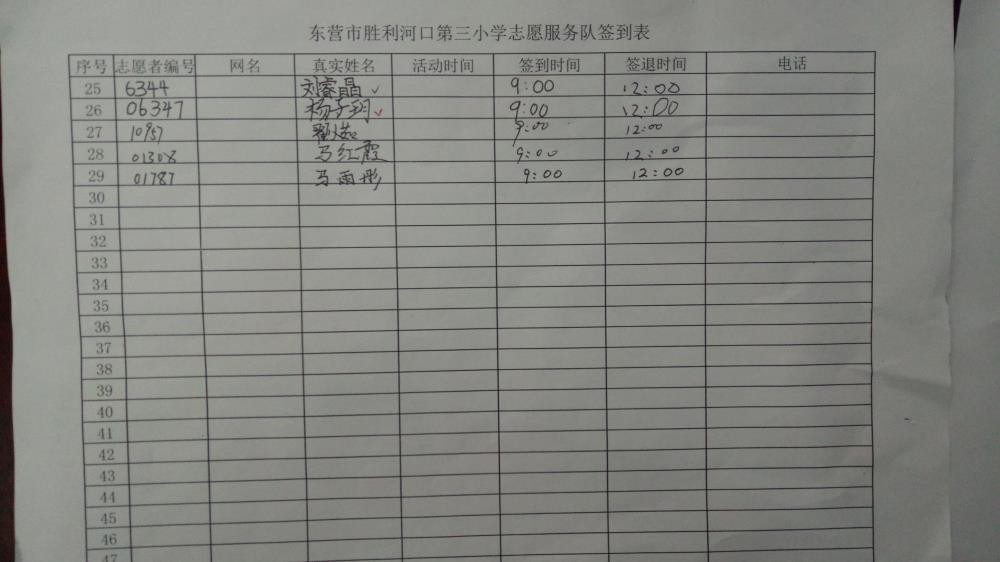 东营市胜利河口第三小学志愿服务队签到表
序号 志愿者编号 网名 真实姓名 活动时间 签到时间 签退时间 电话
25 6344 刘睿晶 ✓ 9:00 12:00
26 06347 杨子玥 ✓ 9:00 12:00
27 9:00 12:00
28 01308 马红霞 9:00 12:00
29 01787 马雨彤 9:00 12:00
30
31
32
33
34
35
36
37
38
39
40
41
42
43
44
45
46
47